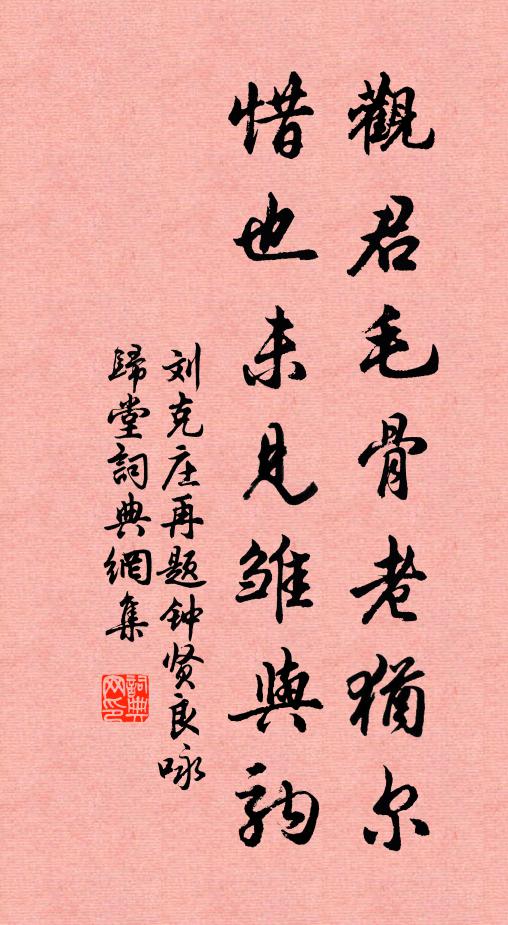 觀君毛骨老猶尔
惜也未見雏與駒
刘克庄再题钟贤良咏
歸堂詞典網集
詞典網印